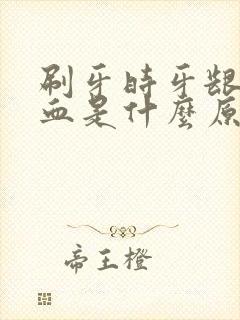 刷牙時牙龈
血是什麼原
帝王橙